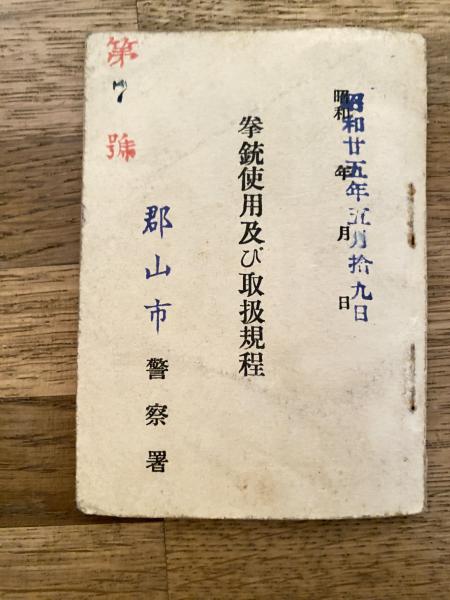 昭和 年 月 日
昭和廿五年五月拾九日
拳銃使用及び取扱規程
郡山市警察署
第7號